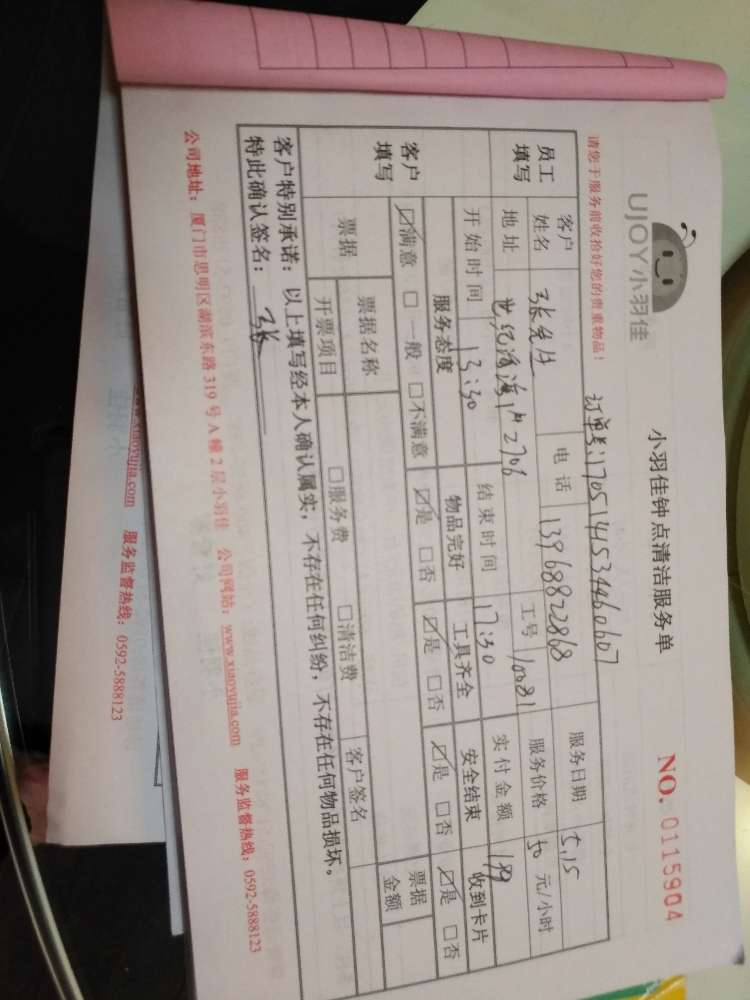 UJOY小羽佳
小羽佳钟点清洁服务单
NO. 0115904
请您于服务前收拾好您的贵重物品！
订单号:1705141534460607
员工填写
客户姓名 张先生 电话 13968822868 服务日期 5.15
地址 世纪 2706 工号 10081 服务价格 50 元/小时
开始时间 13:30 结束时间 17:30 实付金额 199
客户填写
服务态度 物品完好 工具齐全 安全结束 收到卡片
☑满意 □一般 □不满意 ☑是 □否 ☑是 □否 ☑是 □否 ☑是 □否
票据 票据名称 票据金额
开票项目 □服务费 □清洁费 客户签名
客户特别承诺：以上填写经本人确认属实，不存在任何纠纷，不存在任何物品损坏。
特此确认签名： 张
公司地址：厦门市思明区湖滨东路319号A幢2层小羽佳 公司网站：www.xiaoyujia.com 服务监督热线：0592-5888123
www.xiaoyujia.com 服务监督热线：0592-5888123